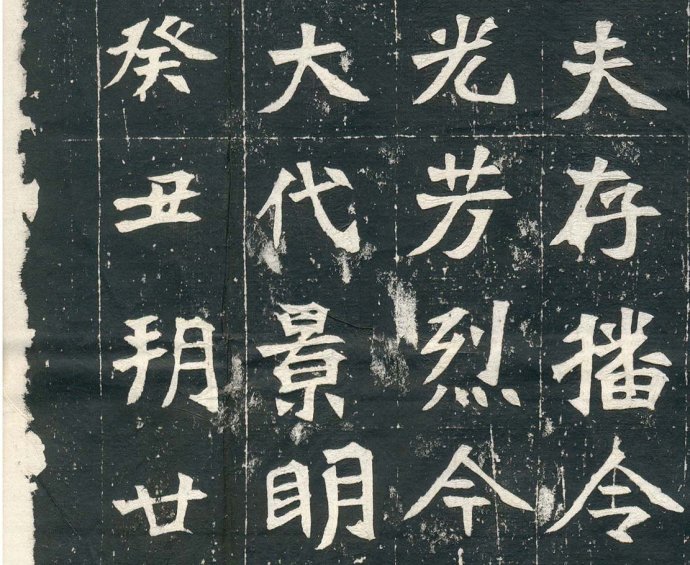 夫存播令
光芳烈今
大代景明
癸丑朔廿